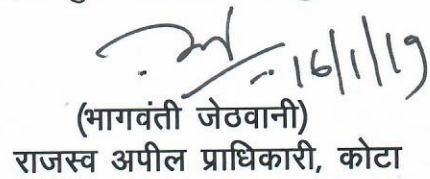 16/1/19
(भागवंती जेठवानी)
राजस्व अपील प्राधिकारी, कोटा